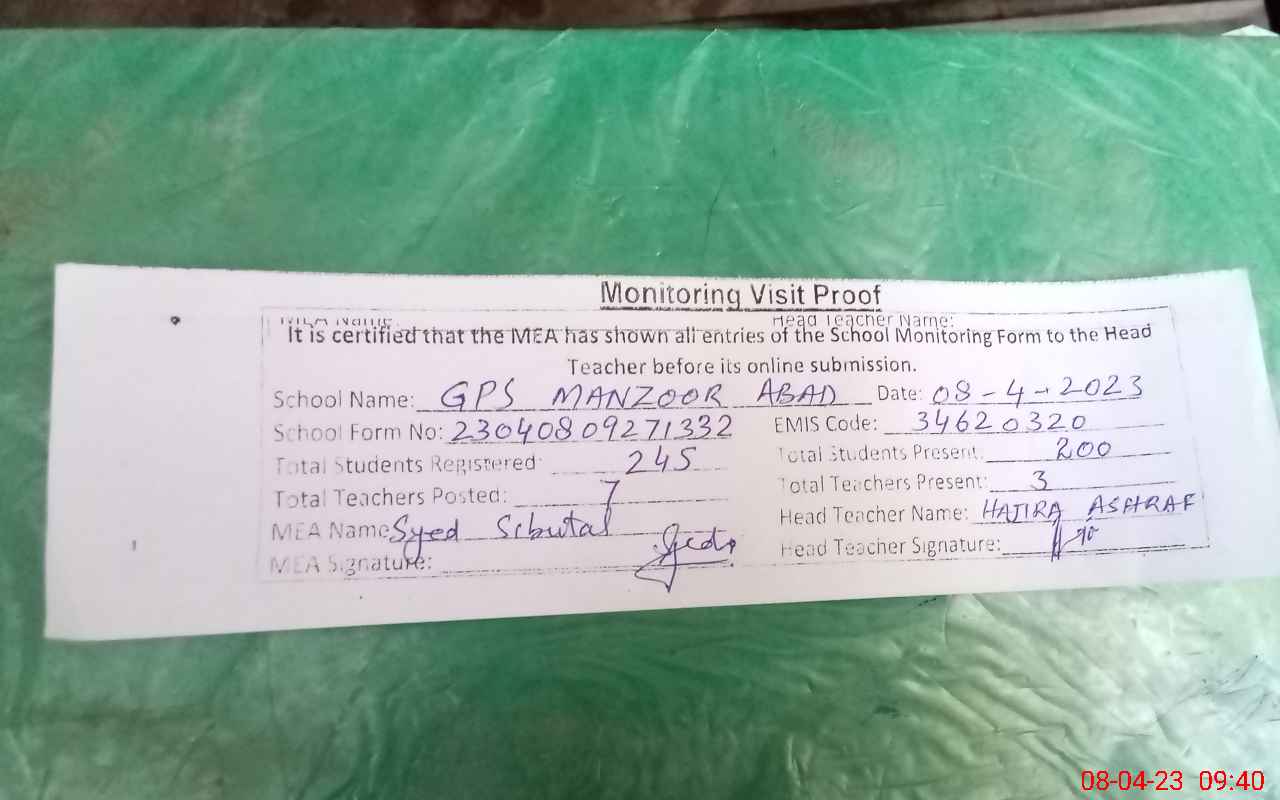 Monitoring Visit Proof
MEA Name Head Teacher Name:
It is certified that the MEA has shown all entries of the School Monitoring Form to the Head
Teacher before its online submission.
School Name: GPS MANZOOR ABAD Date: 08-4-2023
School Form No: 23040809271332 EMIS Code: 34620320
Total Students Registered: 245 Total Students Present: 200
Total Teachers Posted: 7 Total Teachers Present: 3
MEA Name Syed Sibutal Head Teacher Name: HAJIRA ASHRAF
MEA Signature: Head Teacher Signature:
08-04-23 09:40